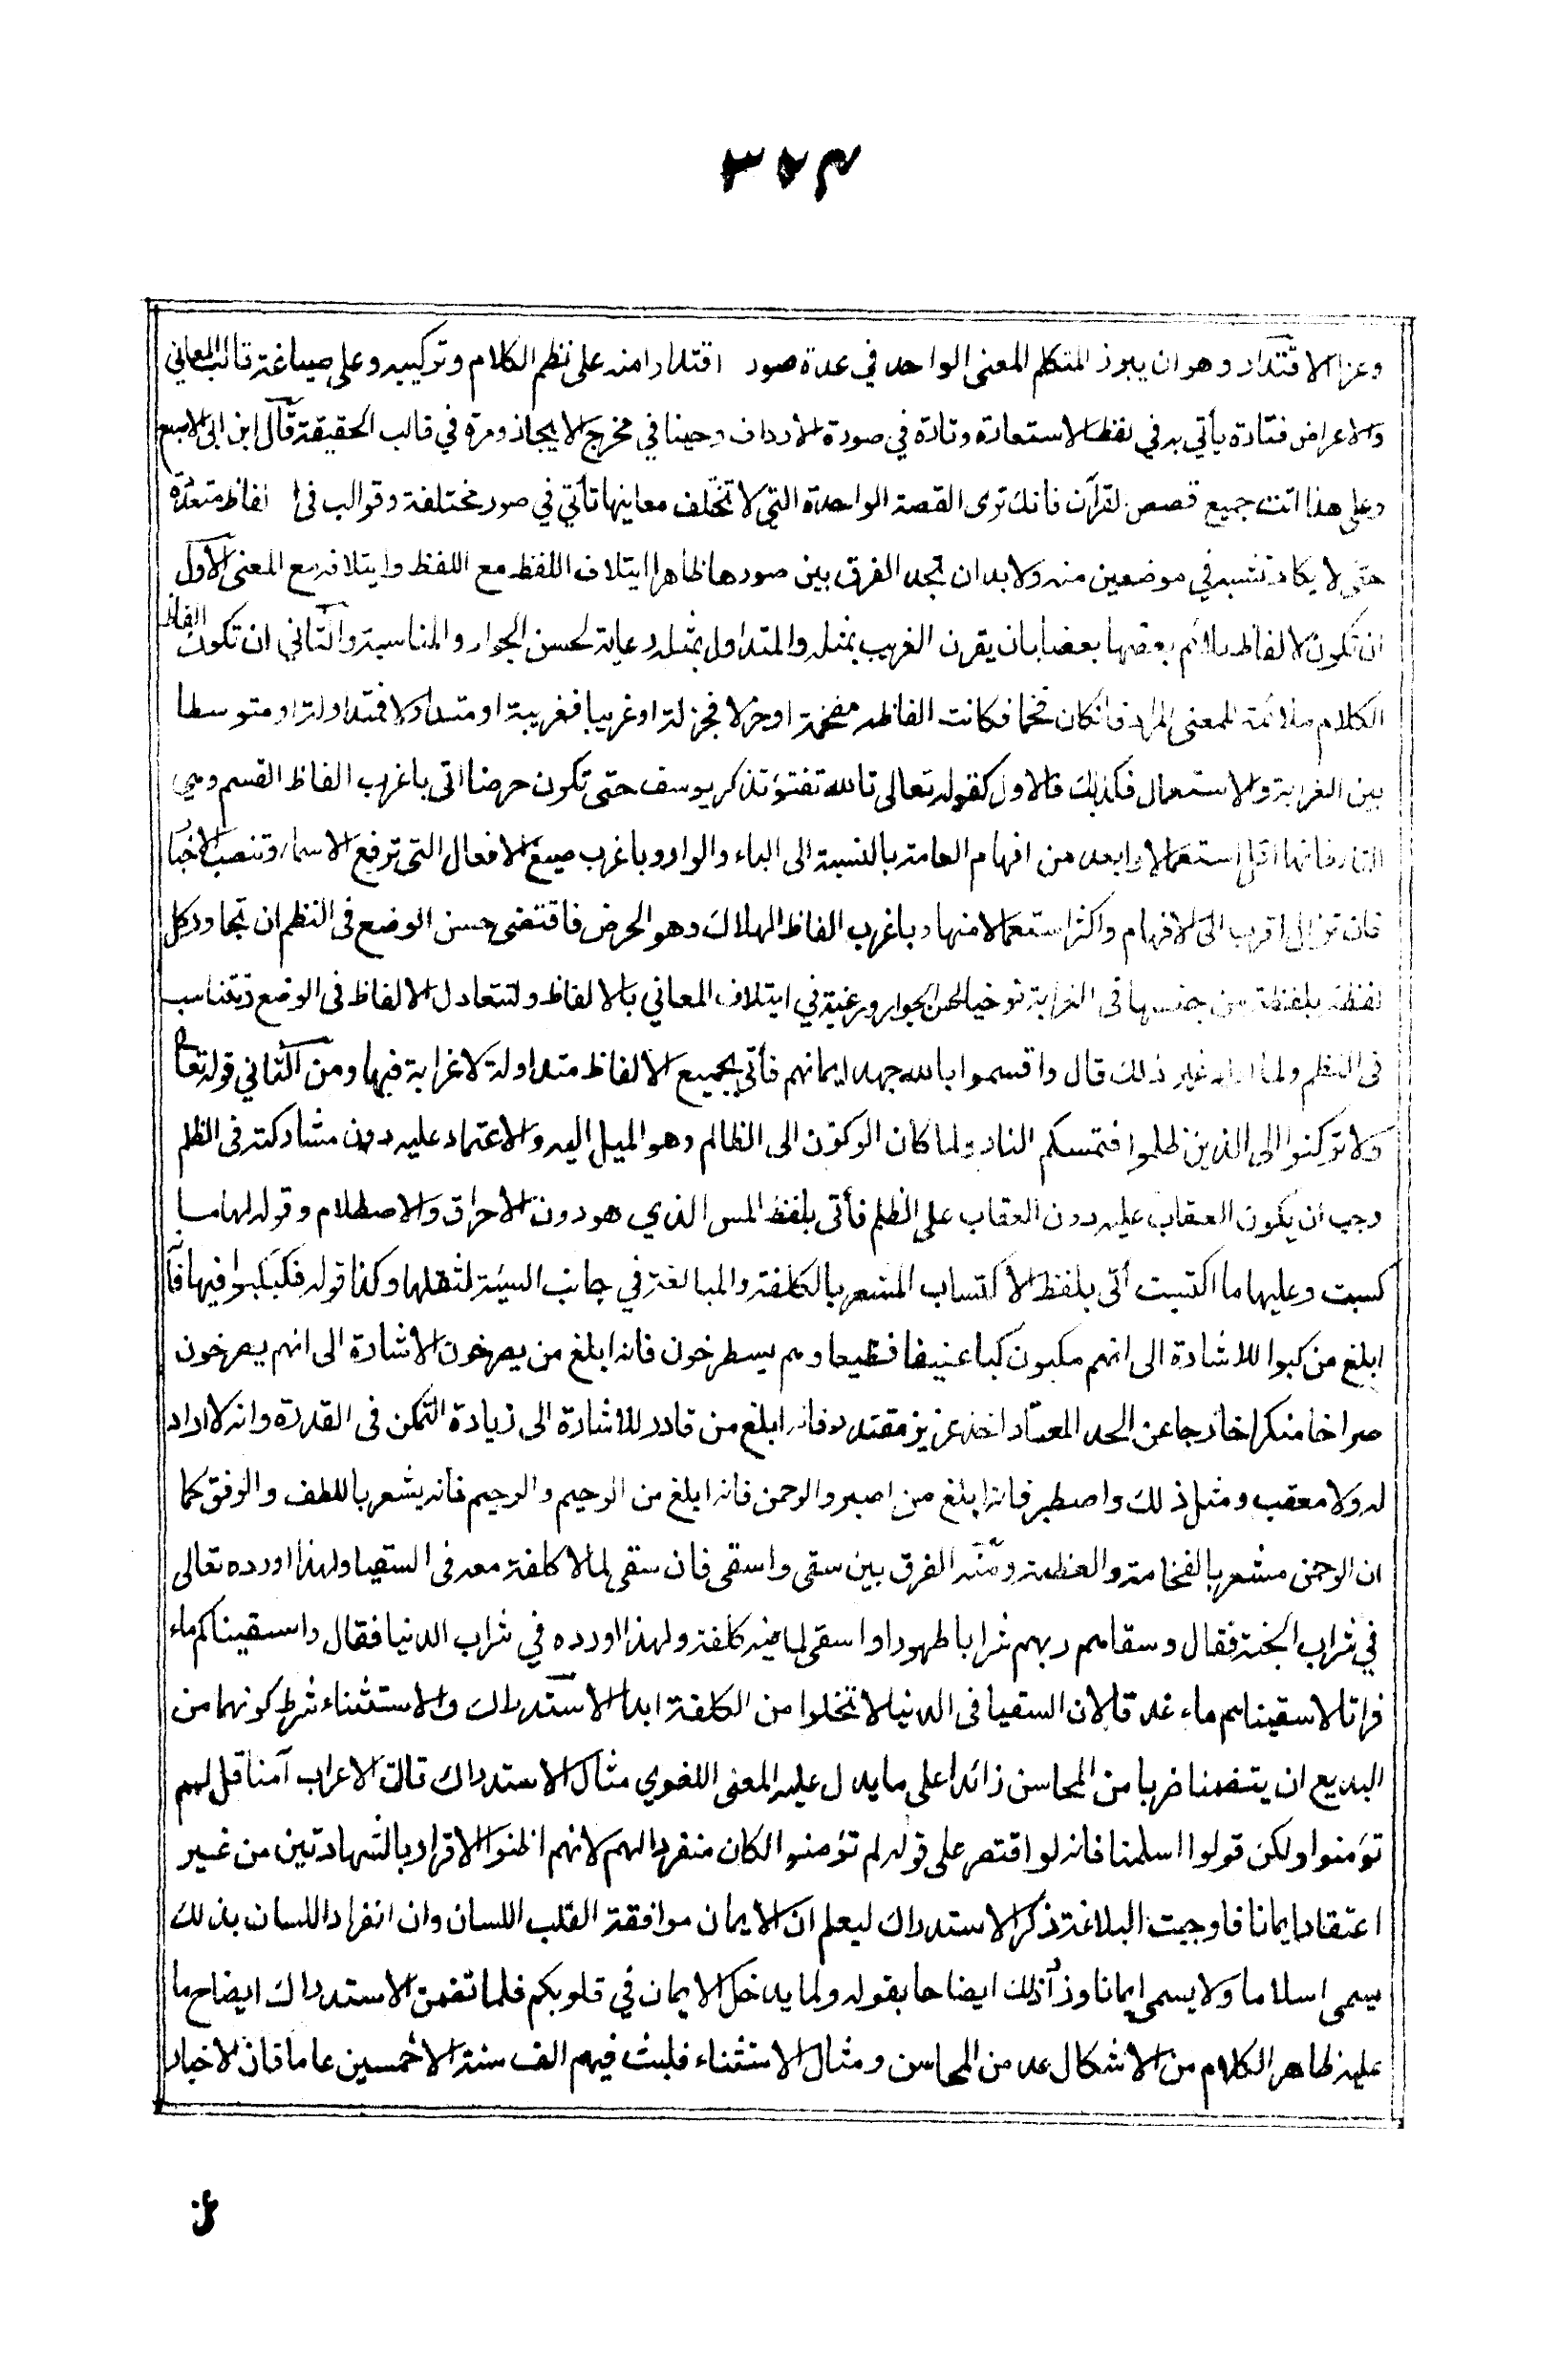 ٣٧٣
وعزا الاقتدار وهو ان يبرز المتكلم المعنى الواحد في عدة صور اقتدارا منه على نظم الكلام وتركيبه وعلى صياغة قالب المعاني
والاعراض فتارة يأتي به في لفظ الاستعارة وتارة في صورة الارداف وحينا في مخرج الايجاز ومرة في قالب الحقيقة قال ابن ابى الاصبع
وعلى هذا اتت جميع قصص القرآن فانك ترى القصة الواحدة التي لا تختلف معانيها تأتي في صور مختلفة وقوالب فى الفاظ متعددة
حتى لا يكاد تشتبه في موضعين منه ولا بد ان تجد الفرق بين صورها ظاهرا ايتلاف اللفظ مع اللفظ وايتلافه مع المعنى الاول
ان تكون الالفاظ يلائم بعضها بعضا بان يقرن الغريب بمثله والمتداول بمثله رعاية لحسن الجوار والمناسبة والثاني ان تكون الفاظ
الكلام ملائمة للمعنى المراد فانكان فخما فكانت الفاظه مفخمة او جزلا فجزلة او غريبا فغريبة او متداولا فمتداولة او متوسطا
بين الغرابة والاستعمال فكذلك فالاول كقوله تعالى تالله تفتؤ تذكر يوسف حتى تكون حرضا اتى باغرب الفاظ القسم وهي
التاء فانها اقل استعمالا وابعد من افهام العامة بالنسبة الى الباء والواو وباغرب صيغ الافعال التى ترفع الاسماء وتنصب الاخبا
فان تزال اقرب الى الافهام واكثر استعمالا منها وباغرب الفاظ الهلاك وهو الحرض فاقتضى حسن الوضع فى النظم ان تجاور كل
لفظة بلفظة من جنسها فى الغرابة توخيا لحسن الجوار ورغبة في ايتلاف المعاني بالالفاظ ولتتعادل الالفاظ فى الوضع وتتناسب
فى النظم ولما اراد غير ذلك قال واقسموا بالله جهد ايمانهم فأتى بجميع الالفاظ متداولة لا غرابة فيها ومن الثاني قوله تعا
ولا تركنوا الى الذين ظلموا فتمسكم النار ولما كان الركون الى الظالم وهو الميل اليه والاعتماد عليه دون مشاركته فى الظلم
وجب ان يكون العقاب عليه دون العقاب على الظلم فأتى بلفظ المس الذي هو دون الاحراق والاصطلام وقوله لها ما
كسبت وعليها ما اكتسبت أتى بلفظ الاكتساب المشعر بالكلفة والمبالغة في جانب السيئة لثقلها وكذا قوله فكبكبوا فيها فأ
ابلغ من كبوا للاشارة الى انهم مكبون كبا عنيفا فظيعا وهم يسطرخون فانه ابلغ من يصرخون الاشارة الى انهم يصرخون
صراخا منكرا خارجا عن الحد المعتاد اخذ عزيز مقتدر فانه ابلغ من قادر للاشارة الى زيادة التمكن فى القدرة وانه لا اراد
له ولا معقب ومثل ذلك واصطبر فانه ابلغ من اصبر والرحمن فانه ابلغ من الرحيم والرحيم فانه يشعر باللطف والرفق كما
ان الرحمن مشعر بالفخامة والعظمة ومنه الفرق بين سقى واسقى فان سقى لما لا كلفة معه فى السقيا ولهذا اورده تعالى
في شراب الجنة فقال وسقاهم ربهم شرابا طهورا واسقى لما فيه كلفة ولهذا اورده في شراب الدنيا فقال واسقيناكم ماء
فراتا لاسقيناهم ماء غدقا لان السقيا فى الدنيا لا تخلوا من الكلفة ابدا الاستدراك والاستثناء شرط كونهما من
البديع ان يتضمنا ضربا من المحاسن زائدا على ما يدل عليه المعنى اللغوي مثال الاستدراك قالت الاعراب آمنا قل لهم
تؤمنوا ولكن قولوا اسلمنا فانه لو اقتصر على قوله لم تؤمنوا لكان منفردا لهم لانهم اظنوا الاقرار بالشهادتين من غير
اعتقاد ايمانا فاوجبت البلاغة ذكر الاستدراك ليعلم ان الايمان موافقة القلب اللسان وان انفراد اللسان بذلك
يسمى اسلاما ولا يسمى ايمانا وزاد ذلك ايضاحا بقوله ولما يدخل الايمان في قلوبكم فلما تضمن الاستدراك ايضاح ما
عليه ظاهر الكلام من الاشكال عد من المحاسن ومثال الاستثناء فلبث فيهم الف سنة الا خمسين عاما فان الاخبار